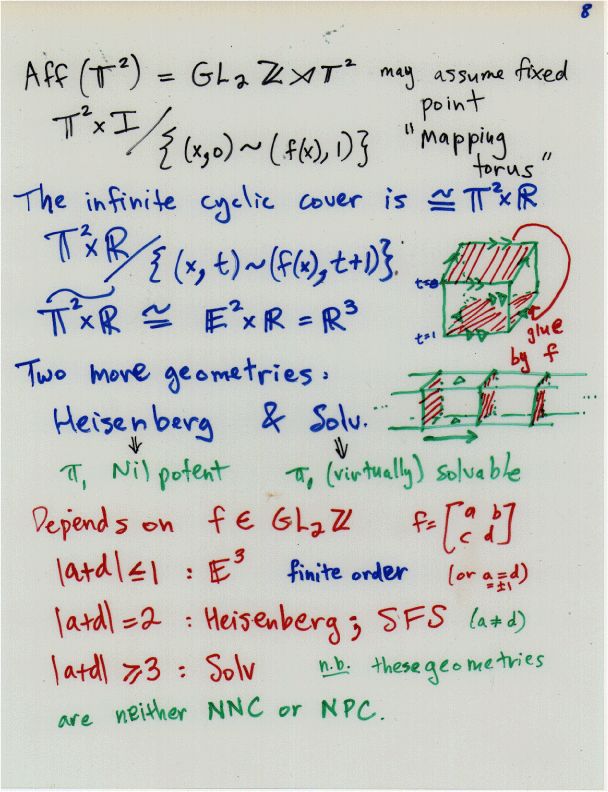 8
Aff (𝕋²) = GL₂ ℤ ⋊ T² may assume fixed point
𝕋² × I / {(x,0) ~ (f(x), 1)} "Mapping torus"
The infinite cyclic cover is ≅ 𝕋² × ℝ
𝕋² × ℝ / {(x, t) ~ (f(x), t+1)}
𝕋² × ℝ ≅ 𝔼² × ℝ = ℝ³
t=0
t=1
glue
by f
Two more geometries:
Heisenberg & Solv.
π₁ Nilpotent π₁ (virtually) solvable
Depends on f ∈ GL₂ ℤ f = [a b
c d]
|a+d| ≤ 1 : 𝔼³ finite order (or a = d = ±1)
|a+d| = 2 : Heisenberg ; SFS (a ≠ d)
|a+d| ≥ 3 : Solv n.b. these geometries
are neither NNC or NPC.